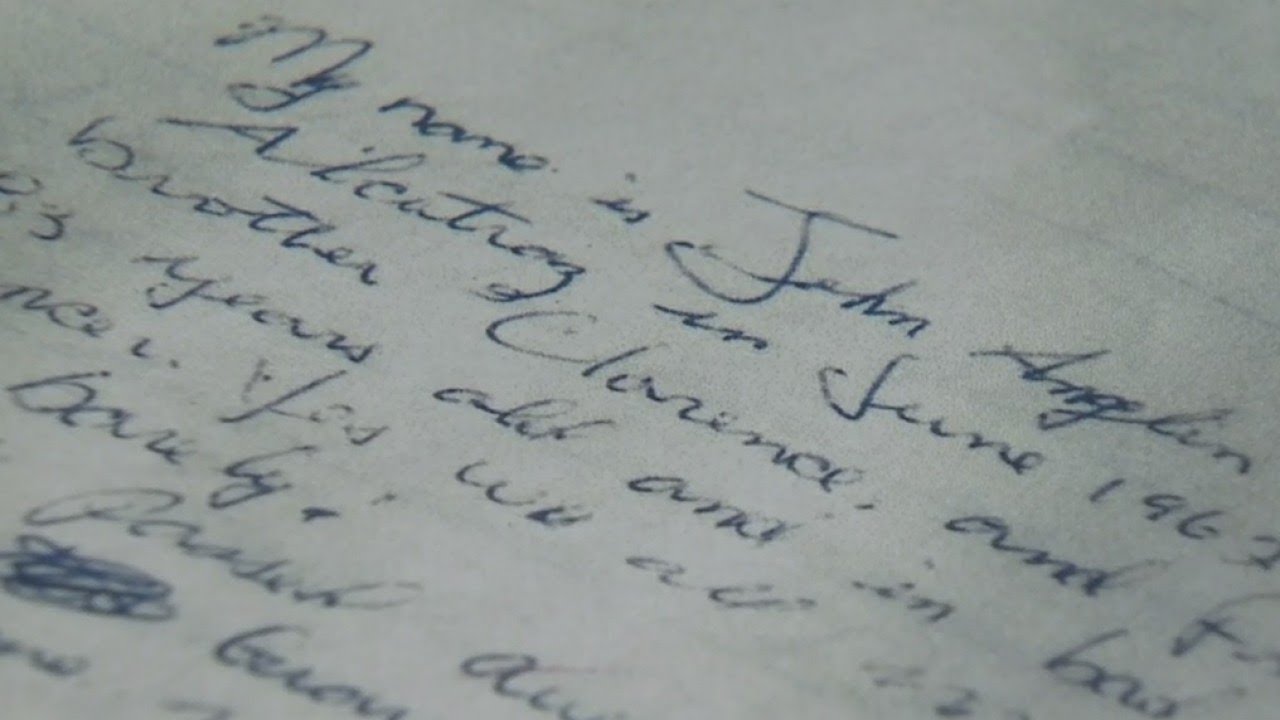 My name is John Anglin
Alcatraz in June 1962
brother Clarence, and
years old and in bad
Yes we all
barely!
Passed